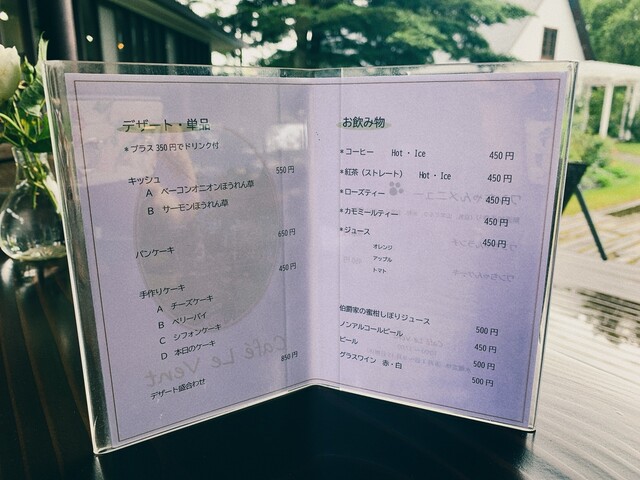 デザート・単品
*プラス350円でドリンク付
キッシュ 550円
A ベーコンオニオンほうれん草
B サーモンほうれん草
パンケーキ 650円
手作りケーキ 450円
A チーズケーキ
B ベリーパイ
C シフォンケーキ
D 本日のケーキ
デザート盛合わせ 850円
Café Le Vent
お飲み物
*コーヒー Hot・Ice 450円
*紅茶(ストレート) Hot・Ice 450円
*ローズティー 450円
*カモミールティー 450円
*ジュース 450円
オレンジ
アップル
トマト
伯爵家の蜜柑しぼりジュース 500円
ノンアルコールビール 450円
ビール 500円
グラスワイン 赤・白 500円